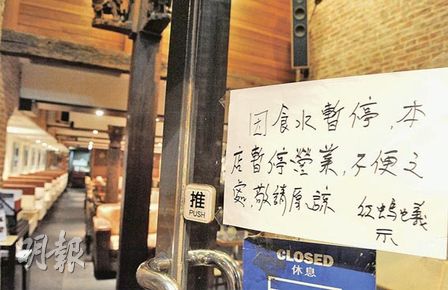 因食水暫停，本
店暫停營業，不便之
處，敬請原諒
紅螞蟻
示
推
PUSH
CLOSED
休息
明報